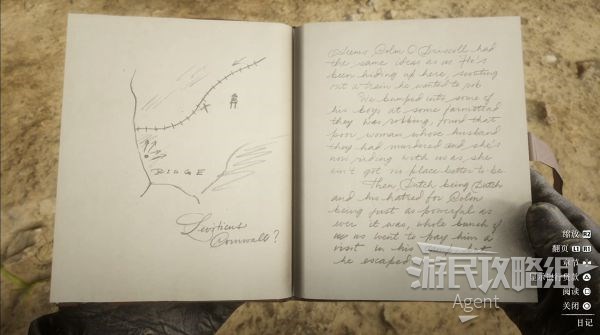 RIDGE
Leviticus
Cornwall?
Seems, Colm O'Driscoll had
the same ideas as us. He's
been hiding up here, scouting
out a train he wanted to rob
We bumped into some of
his boys at some farmstead
they was robbing, found that
poor woman whose husband
they had murdered and she's
now riding with us as, she
ain't got no place better to be.
Then Dutch being Dutch
and his hatred for Colm
being just as powerful as
ever it was, whole bunch of
us went to pay him a
visit in his
he escaped
缩放 R2
翻页 L1 R1
阅读
关闭
日记
游民攻略组
Agent